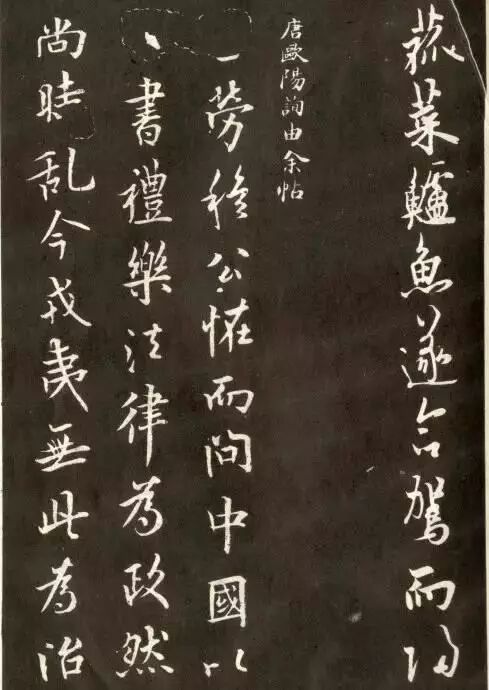 菰菜鱸魚遂命駕而歸
唐歐陽詢由余帖
勞穆公恠而問中國以
書禮樂法律為政然
尚時乱今戎夷無此為治